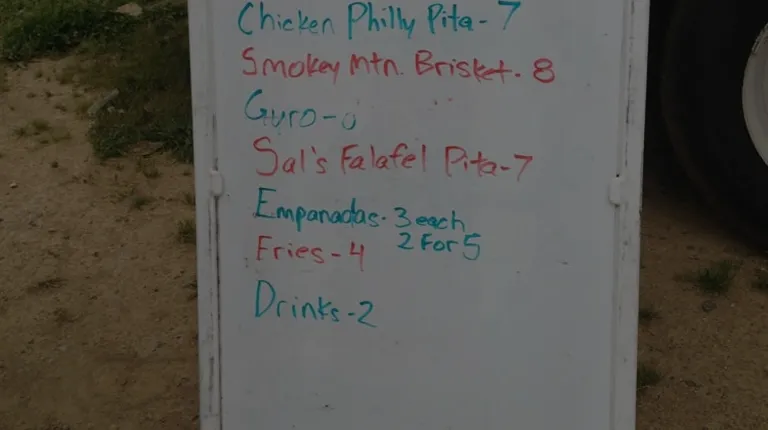 Chicken Philly Pita - 7
Smokey Mtn. Brisket - 8
Gyro -
Sal's Falafel Pita - 7
Empanadas - 3 each
2 For 5
Fries - 4
Drinks - 2